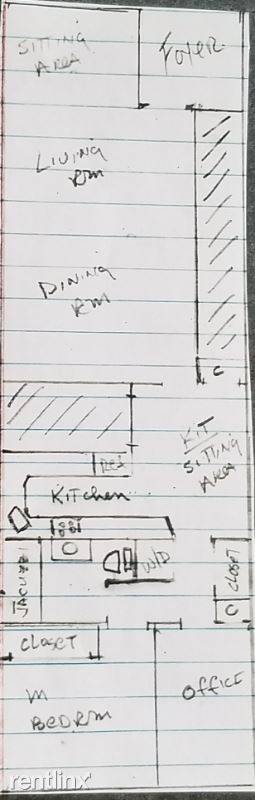 SITTING
AREA
Foyer
LIVING
RM
DINING
RM
C
KIT
SITTING
AREA
REF
KITCHEN
JACUZZI
W/D
CLOSET
C
CLOSET
M
BEDRM
OFFICE
rentlinx